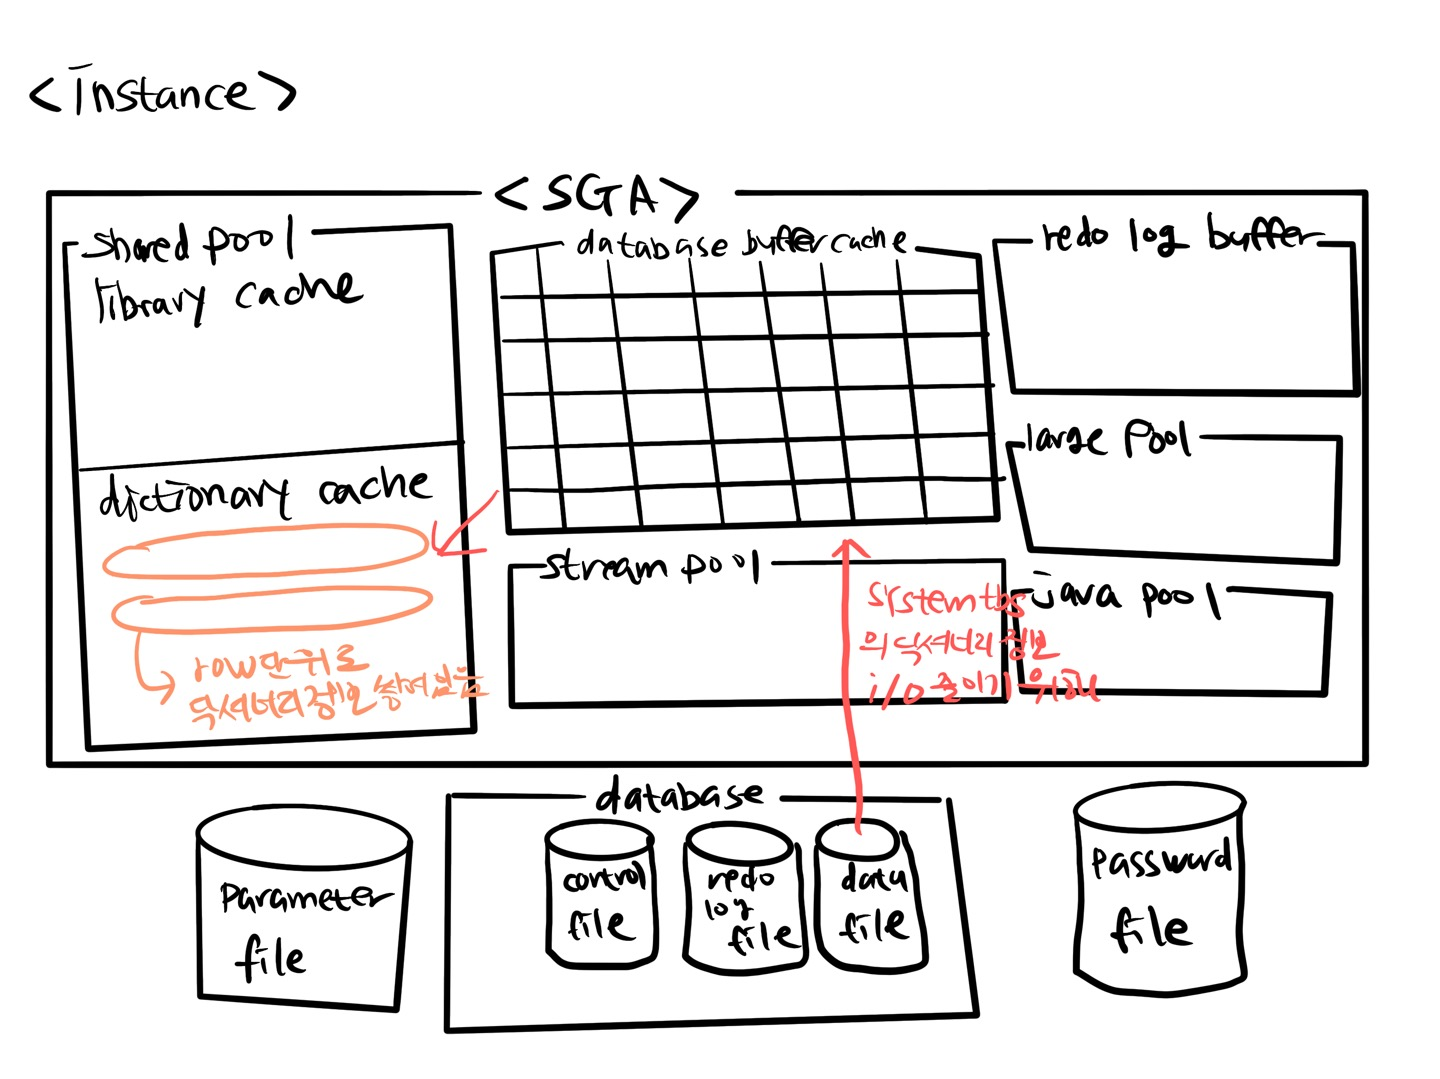 <instance>
<SGA>
shared pool
library cache
dictionary cache
row단위로
딕셔너리정보 쌓여있음
database buffer cache
stream pool
system tbs
의 딕셔너리 정보
i/o 줄이기 위해
redo log buffer
large pool
java pool
parameter
file
database
control
file
redo
log
file
data
file
password
file